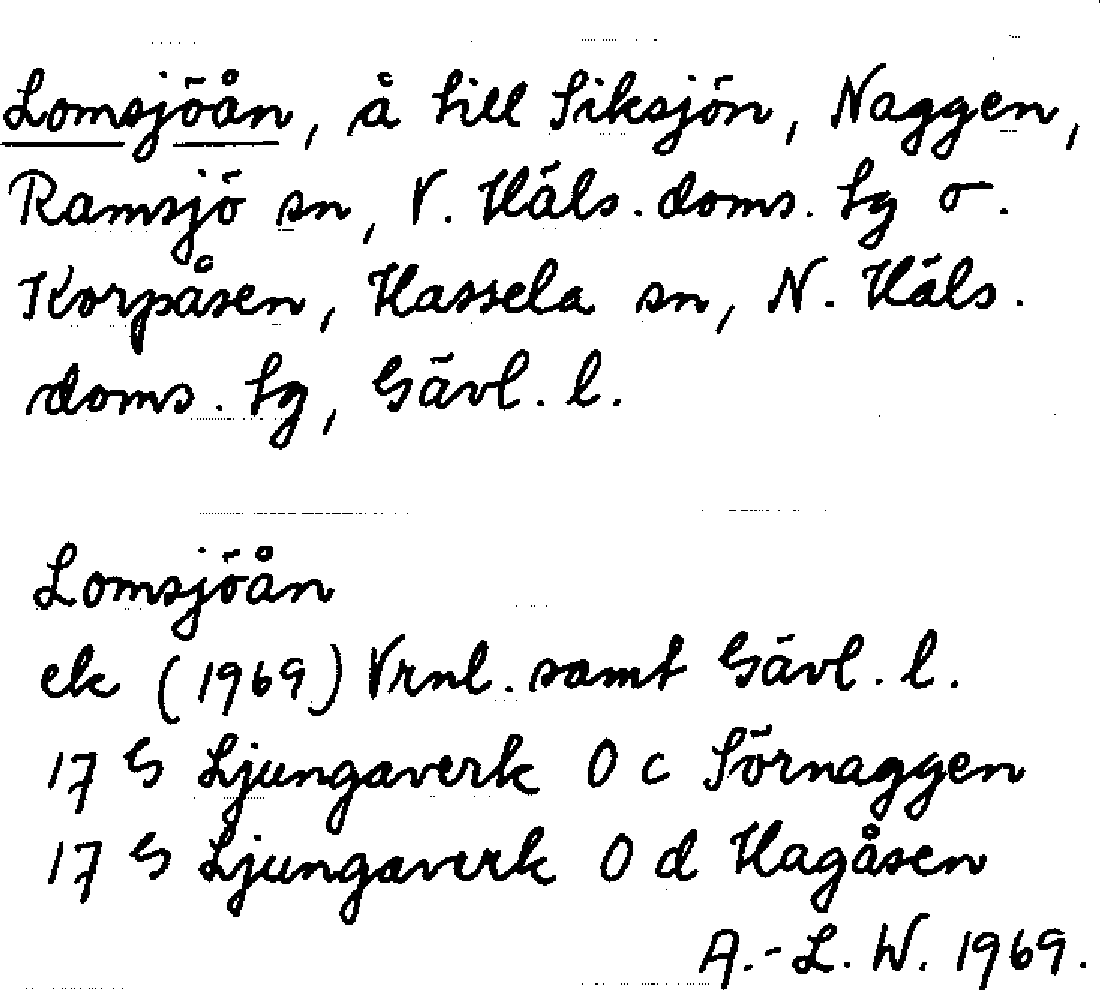 Lomsjöån, å till Siksjön, Naggen,
Ramsjö sn, V. Häls. doms. tg o.
Korpåsen, Hassela sn, N. Häls.
doms. tg, Gävl. l.
Lomsjöån
ek (1969) Vrnl. samt Gävl. l.
17 G Ljungaverk 0 c Sörnaggen
17 G Ljungaverk 0 d Hagåsen
A.-L. W. 1969.